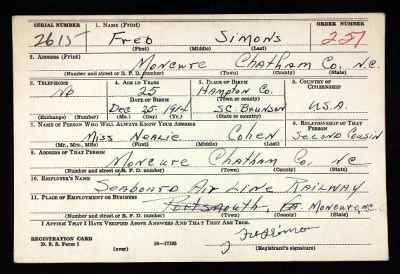 SERIAL NUMBER 1. NAME (Print) ORDER NUMBER
2615 FRED SIMONS 251
(First) (Middle) (Last)
2. ADDRESS (Print)
MONCURE CHATHAM CO. N.C.
(Number and street or R. F. D. number) (Town) (County) (State)
3. TELEPHONE 4. AGE IN YEARS 5. PLACE OF BIRTH 6. COUNTRY OF CITIZENSHIP
No 25 HAMPTON CO.
DATE OF BIRTH (Town) (County)
DEC 25 1914 SC BRUNSON U.S.A.
(Exchange) (Number) (Mo.) (Day) (Yr.) (State or country)
7. NAME OF PERSON WHO WILL ALWAYS KNOW YOUR ADDRESS 8. RELATIONSHIP OF THAT PERSON
MISS NEALIE COHEN SECOND COUSIN
(Mr., Mrs., Miss) (First) (Middle) (Last)
9. ADDRESS OF THAT PERSON
MONCURE CHATHAM CO. NC
(Number and street or R. F. D. number) (Town) (County) (State)
10. EMPLOYER'S NAME
SEABOARD AIR LINE RAILWAY
11. PLACE OF EMPLOYMENT OR BUSINESS
PORTSMOUTH, VA. MONCURE, N.C.
(Number and street or R. F. D. number) (Town) (County) (State)
I AFFIRM THAT I HAVE VERIFIED ABOVE ANSWERS AND THAT THEY ARE TRUE.
REGISTRATION CARD
D. S. S. Form 1 (over) 16—17105 (Registrant's signature)